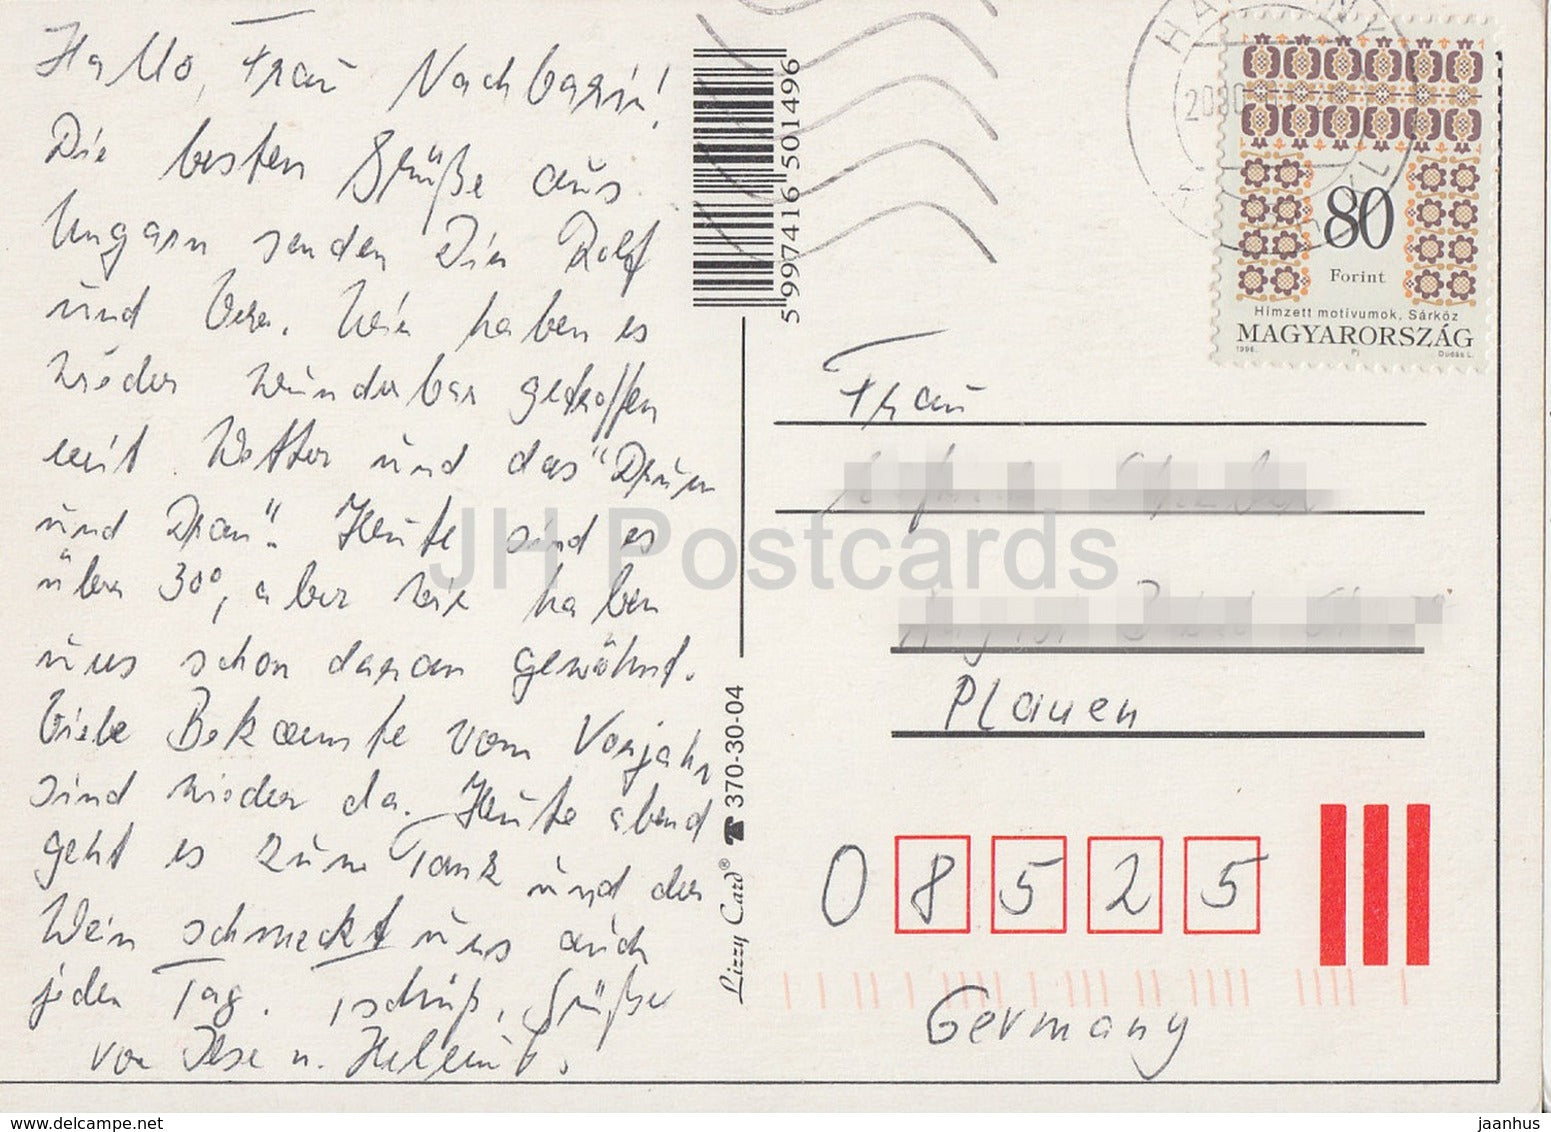 Hallo, Frau Nachbarin!
Die besten Grüße aus
Ungarn senden Dir Rolf
und Vera. Wir haben es
wieder wunderbar getroffen
mit Wetter und das "Drum
und Dran". Heute sind es
über 30°, aber wir haben
uns schon daran gewöhnt.
Viele Bekannte vom Vorjahr
sind wieder da. Heute abend
geht es zum Tanz und der
Wein schmeckt uns auch
jeden Tag. Tschüß, Grüße
von Ilse u. Helmut.
5 997416 501496
☎ 370-30-04
Lizzy Card®
80
Forint
Hímzett motívumok, Sárköz
MAGYARORSZÁG
1996.
Pj
Dudás L.
Frau
Plauen
0 8 5 2 5
Germany
JH Postcards
www.delcampe.net
jaanhus